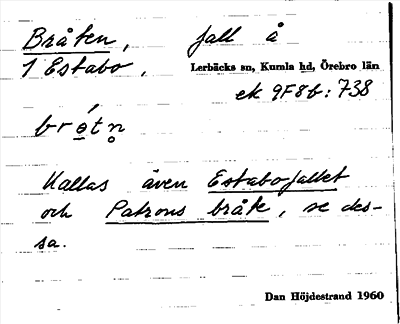 Bråten, fall å
1 Estabo, Lerbäcks sn, Kumla hd, Örebro län
ek 9F8b:738
brǿtn̥
Kallas även Estabofallet
och Patrons bråte, se des-
sa.
Dan Höjdestrand 1960